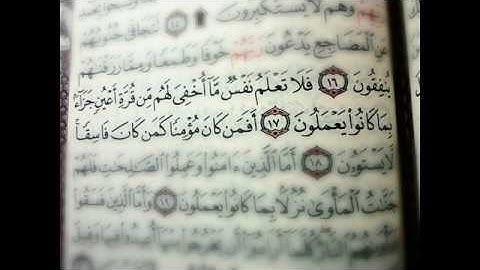 وهم لا يستكبرون ۩ ١٥ تتجافى جنوبهم
عن المضاجع يدعون ربهم خوفا وطمعا ومما رزقناهم
يُنفِقُونَ ١٦ فَلَا تَعْلَمُ نَفْسٌ مَّآ أُخْفِىَ لَهُم مِّن قُرَّةِ أَعْيُنٍ جَزَآءًۢ
بِمَا كَانُوا۟ يَعْمَلُونَ ١٧ أَفَمَن كَانَ مُؤْمِنًا كَمَن كَانَ فَاسِقًا
لَّا يَسْتَوُۥنَ ١٨ أَمَّا ٱلَّذِينَ ءَامَنُوا۟ وَعَمِلُوا۟ ٱلصَّٰلِحَٰتِ فَلَهُمْ
جَنَّٰتُ ٱلْمَأْوَىٰ نُزُلًۢا بِمَا كَانُوا۟ يَعْمَلُونَ ١٩ وَأَمَّا ٱلَّذِينَ فَسَقُوا۟